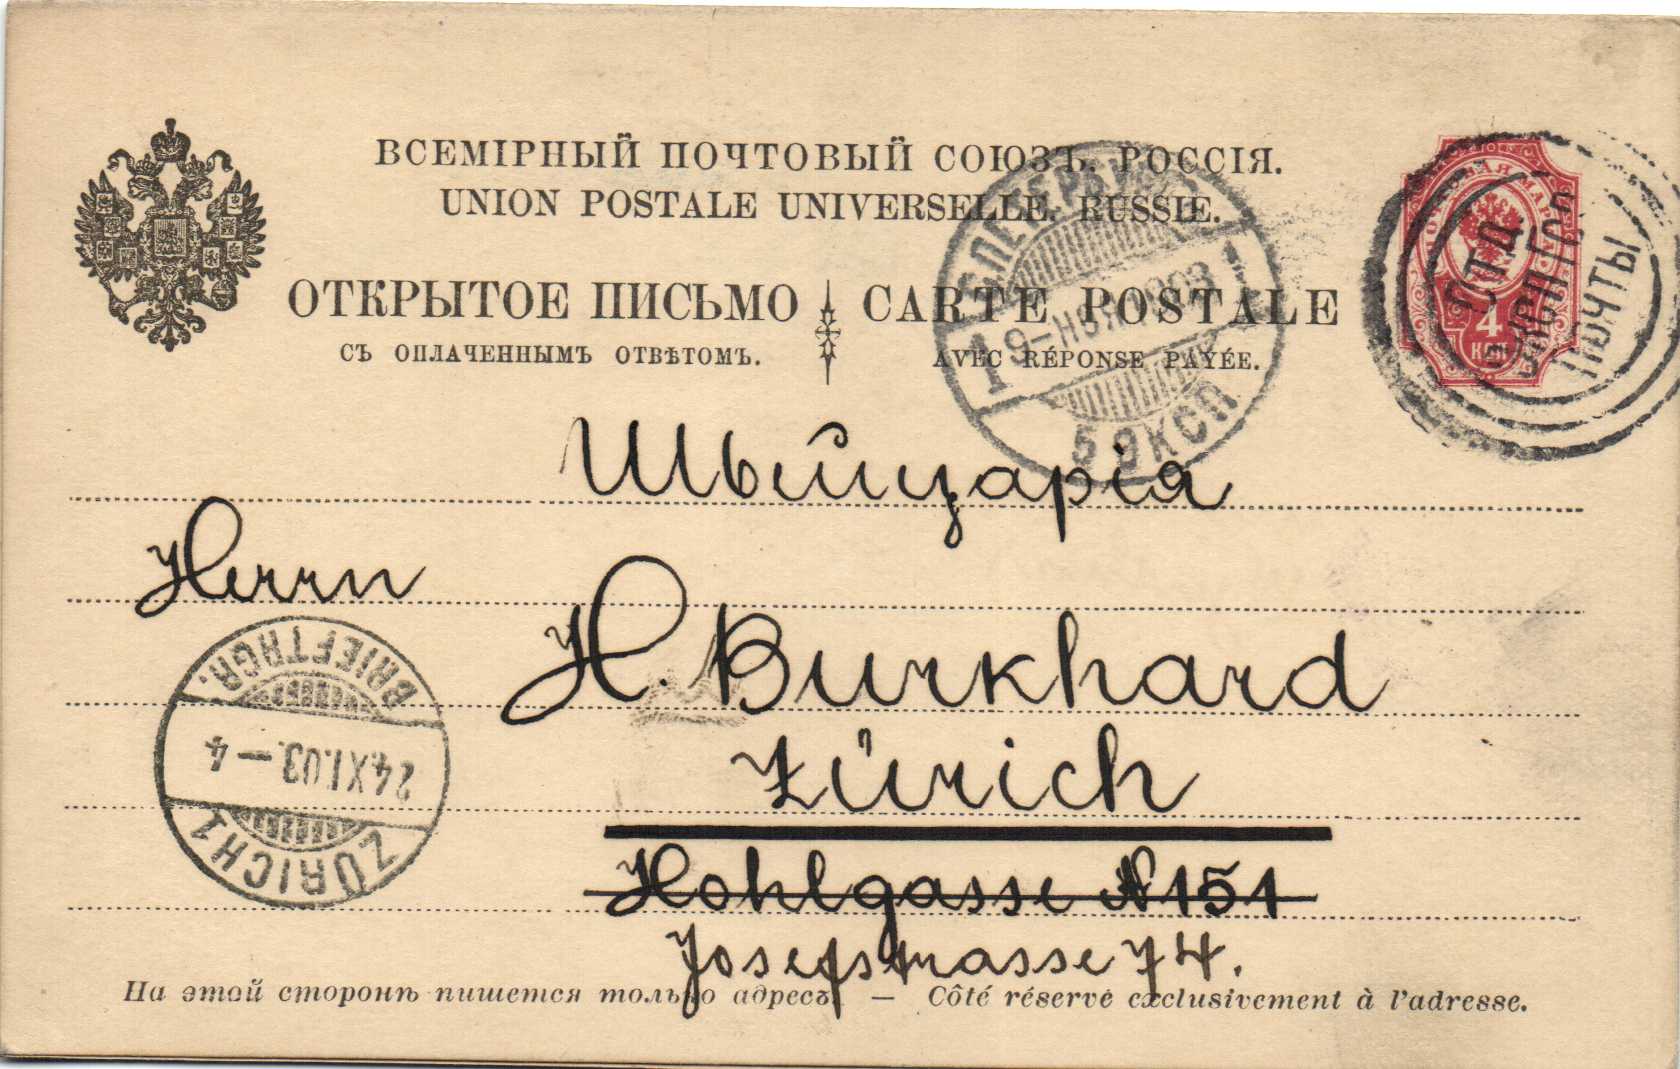 ВСЕМІРНЫЙ ПОЧТОВЫЙ СОЮЗЪ. РОССІЯ.
UNION POSTALE UNIVERSELLE. RUSSIE.
ОТКРЫТОЕ ПИСЬМО
CARTE POSTALE
СЪ ОПЛАЧЕННЫМЪ ОТВѢТОМЪ.
AVEC RÉPONSE PAYÉE.
4
КОП
ПОЧТОВАЯ МАРКА
ЭКСП ГОР
ПОЧТЫ
С.ПЕТЕРБУРГЪ
1 9-НОЯ 1903 1
5 ЭКСП
Швейцарія
Herrn
H. Burkhard
Zürich
Hohlgasse № 151
Josefstrasse 74.
BRIEFTRGR.
24.XI.03.-4
ZÜRICH 1
На этой сторонѣ пишется только адресъ. — Côté réservé exclusivement à l'adresse.